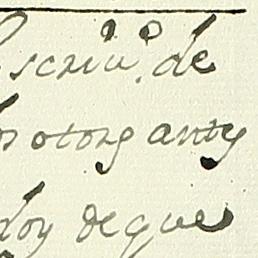 escriu.º de
os otorgantes
doy de que